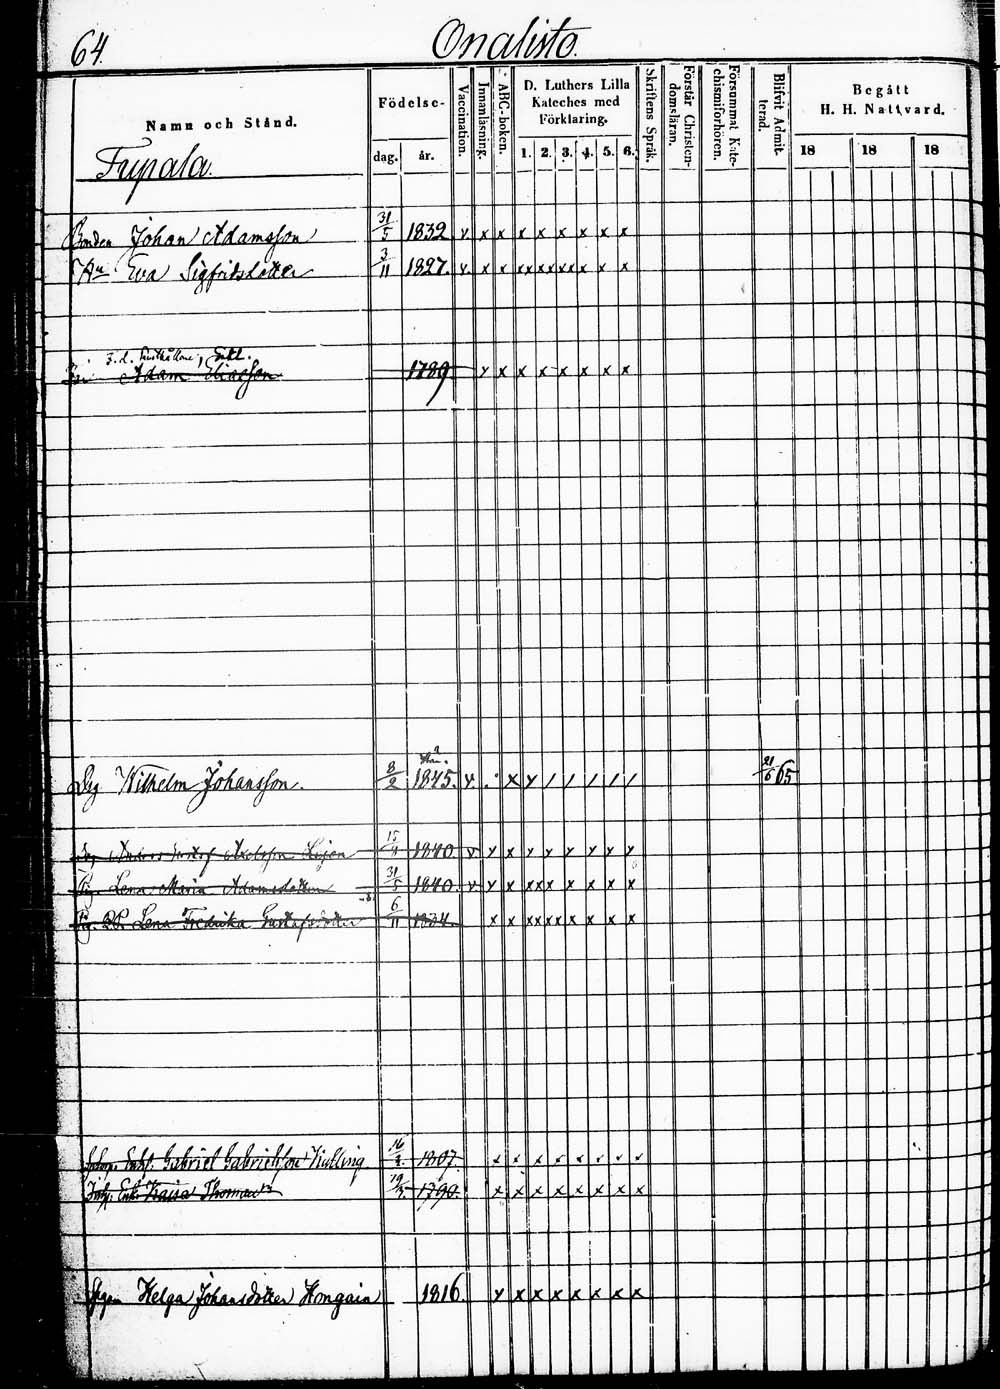 64.
Onalisto.
Namn och Stånd.
Födelse-
dag. år.
Vaccination.
Innanläsning.
ABC-boken.
D. Luthers Lilla
Kateches med
Förklaring.
1. 2. 3. 4. 5. 6.
Skriftens Språk.
Förstår Christen-
domsläran.
Försummat Kate-
chismiförhören.
Blifvit Admit-
terad.
Begått
H. H. Nattvard.
18 18 18
Bonden Johan Adamsson 31/5 1832 v. x x x x x x x x
Hu Eva Sigfridsdotter 3/11 1827. v. x x xx xx xx x x x
Adam Eliasson 1789 y x x x x x x x
Drg Wilhelm Johansson. 8/2 1845. v. . x y / / / / / 21/6 65
Anders Gustaf 15 1840. v y x y y y y y y
Pig. Lena Maria Adamsdotter 31/5 1840. v y x xxx x x x x
Lena Fredrika Gustafsdotter 6/11 1834. x x xx xx x x x x
Gabriel Gabrielsson 16 1807. x x x x x x x x
Enk. Kaisa Thomasd 19 1790. x x x x x x x x
Helga Johansdotter Hongain 1816. y x x x x x x x